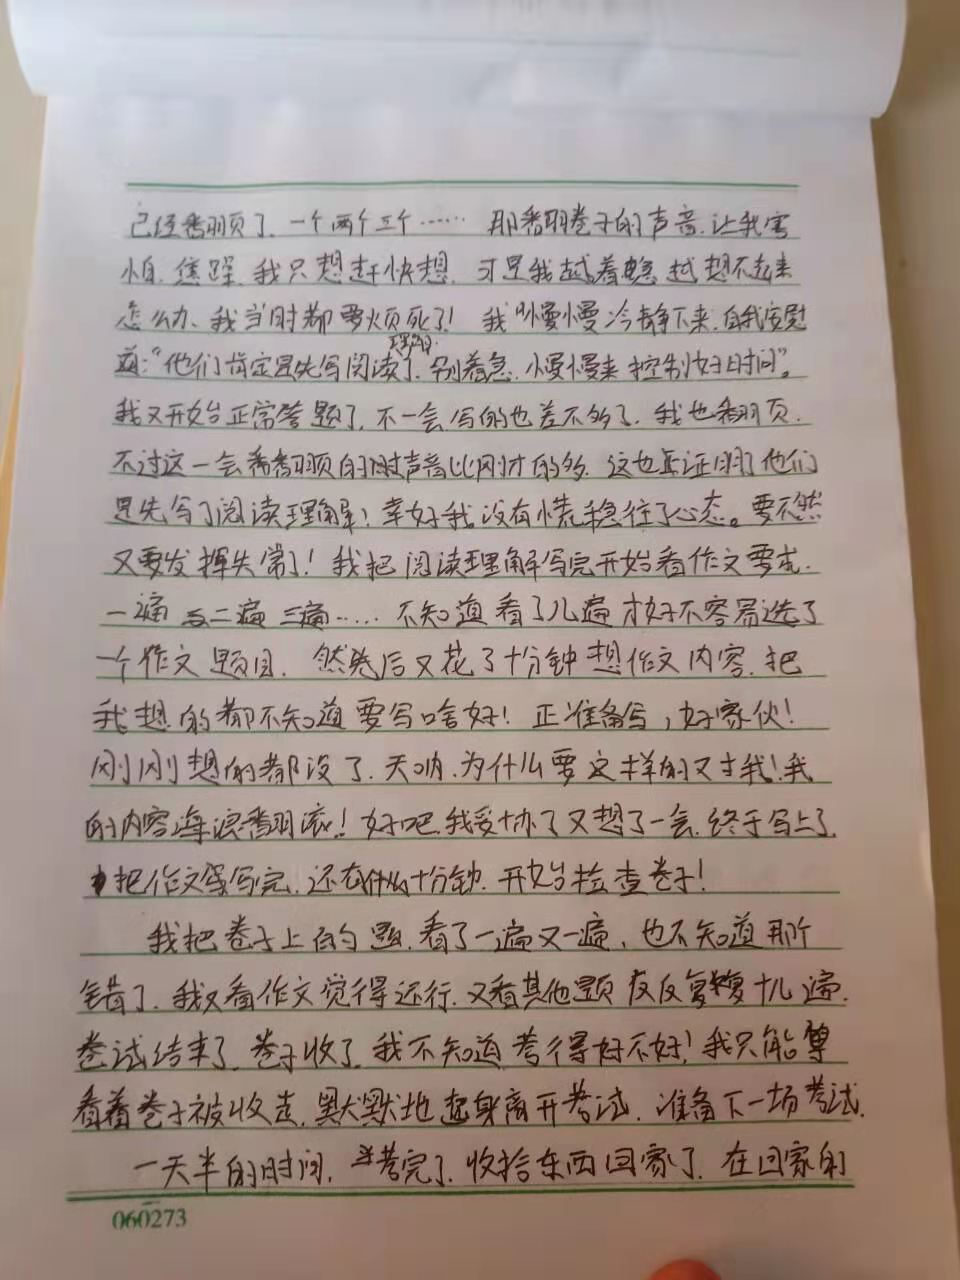 已经翻页了、一个两个三个…… 那翻卷子的声音、让我害
怕、焦躁、我只想赶快想、可是我越着急 越想不起来
怎么办、我当时都要烦死了! 我慢慢冷静下来、自我安慰
道:"他们肯定是先写阅读理解了、别着急、慢慢来 控制好时间"。
我又开始正常答题了、不一会写的也差不多了、我也翻页、
不过这一会翻页的声音比刚才的多、这也证明了他们
是先写了阅读理解! 幸好我没有慌稳住了心态。要不然
又要发挥失常了! 我把阅读理解写完开始看作文要求、
一遍 二遍 三遍…… 不知道看了几遍才好不容易选了
一个作文题目、然后又花了十分钟想作文内容、把
我想的都不知道要写啥好! 正准备写,好家伙!
刚刚想的都没了、天呐、为什么要这样的对我!我
的内容海浪翻滚! 好吧、我妥协了又想了一会、终于写上了、
把作文写完、还有什么十分钟、开始检查卷子!
我把卷子上的题、看了一遍又一遍、也不知道那个
错了、我又看作文觉得还行、又看其他题 反反复复十几遍、
考试结束了、卷子收了、我不知道考得好不好! 我只能
看着卷子被收走、默默地起身离开考试、准备下一场考试、
一天半的时间、考完了、收拾东西回家了、在回家的
060273